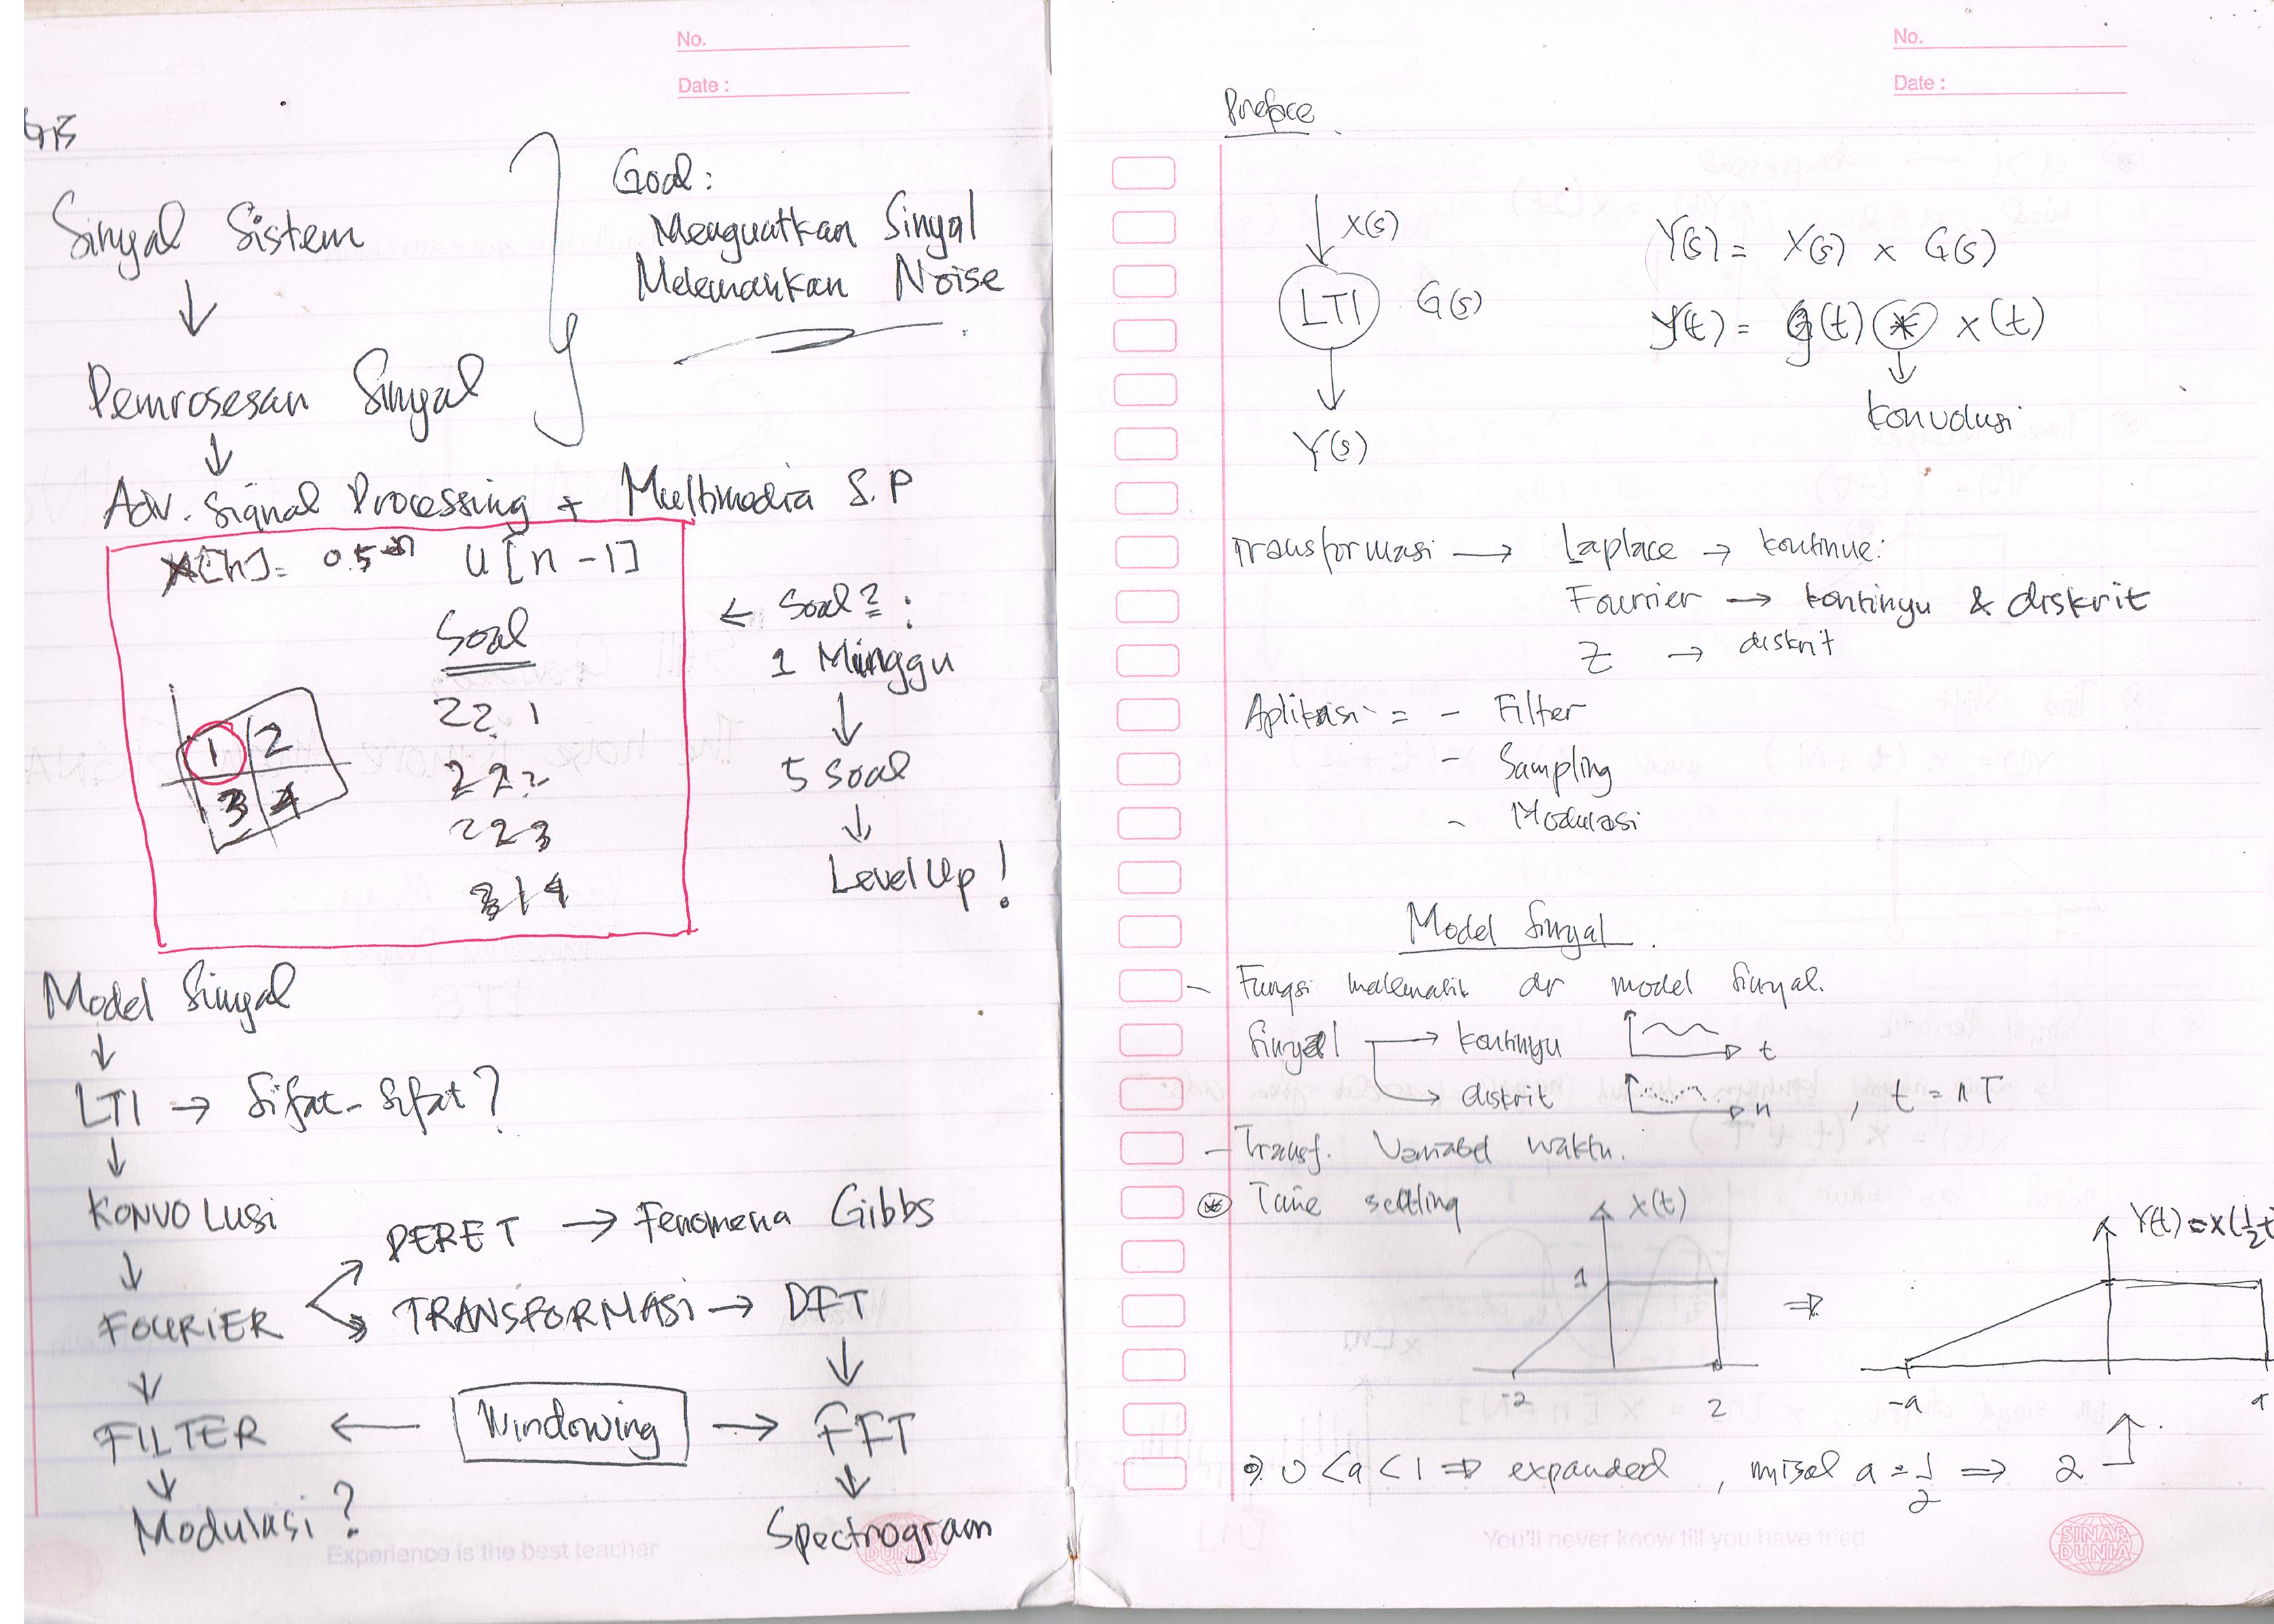 No.
Date :
Sinyal Sistem
↓
Pemrosesan Sinyal
↓
Adv. Signal Processing + Multimedia S.P
Goal:
Menguatkan Sinyal
Melemahkan Noise
x[n]= 0.5 u[n-1]
Soal
22.1
222
223
314
1 2
3 4
← Soal? :
1 Minggu
↓
5 soal
↓
Level Up!
Model Sinyal
↓
LTI → Sifat-Sifat?
↓
KONVOLUSI
↓
FOURIER
DERET → Fenomena Gibbs
TRANSFORMASI → DFT
↓
FILTER ← Windowing → FFT
↓
Modulasi?
↓
Spectrogram
Experience is the best teacher
SINAR DUNIA
No.
Date :
Preface
X(s)
LTI G(s)
Y(s)
Y(s) = X(s) x G(s)
y(t) = g(t) * x(t)
↓
konvolusi
Transformasi → Laplace → kontinue:
Fourrier → kontinyu & diskrit
Z → diskrit
Aplikasi = - Filter
- Sampling
- Modulasi
Model Sinyal
- Fungsi matematik dr model Sinyal.
Sinyal → kontinyu t
→ diskrit n , t = nT
- Transf. Variabel waktu.
* Time
x(t)
1
-2 2
⇒
Y(t) = x(½t
-a
0<a<1 ⇒ expanded , misal a = 1/2 ⇒ 2
You'll never know till you have tried
SINAR DUNIA